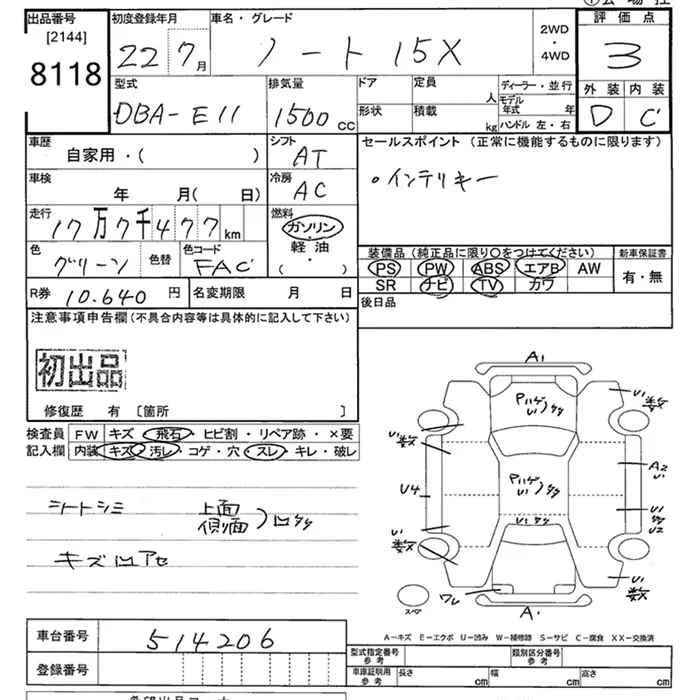 出品番号
[2144]
8118
初度登録年月
22 7月
車名・グレード
ノート 15X
2WD
・
4WD
評価点
3
外装 内装
D C
型式
DBA-E11
排気量
1500 CC
ドア
形状
定員
人
積載
kg
ディーラー・並行
モデル年式 年
ハンドル 左・右
車歴
自家用・( )
シフト
AT
セールスポイント (正常に機能するものに限ります)
・インテリキー
車検
年 月( 日)
冷房
AC
走行
17万7千477km
燃料
ガソリン
・
軽油
・
( )
色
グリーン
色替
色コード
FAC
装備品 (純正品に限り○をつけてください)
新車保証書
PS PW ABS エアB AW
有・無
SR ナビ TV カワ
R券 10.640円
名変期限 月 日
後日品
注意事項申告欄(不具合内容等は具体的に記入して下さい)
初出品
修復歴 有 [箇所 ]
検査員
記入欄
FW キズ・飛石・ヒビ割・リペア跡・×要
内装 キズ・汚レ・コゲ・穴・スレ・キレ・破レ
シートシミ
上面
側面
キズ凹アセ
A1
U1
数
U1
数
Pハゲ
U1
A2
U1
U4
Pハゲ
U1
U1
U2
U1
U1
数
U1
数
ワレ
スペア
A1
車台番号
514206
登録番号
A-キズ E-エクボ U-凹み W-補修跡 S-サビ C-腐食 XX-交換済
型式指定番号
参考
類別区分番号
参考
車庫証明用
参考
長さ
cm
幅
cm
高さ
cm